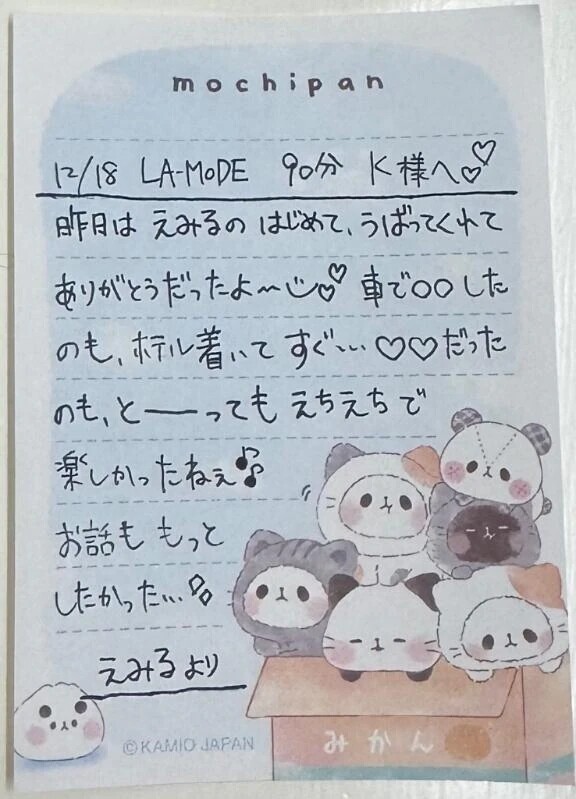 mochipan
12/18 LA-MODE 90分 K様へ♡♡
昨日は えみるの はじめて、うばってくれて
ありがとうだったよ〜♡♡ 車で○○した
のも、ホテル着いて すぐ… ♡♡だった
のも、と——っても えちえちで
楽しかったねぇ♪♪
お話も もっと
したかった…
えみるより
みかん
©KAMIO JAPAN